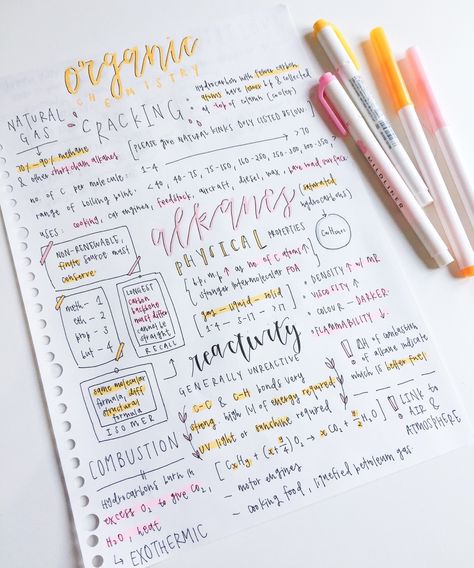 organic
CHEMISTRY
Hydrocarbon with fewer carbon
atoms have lower bp & collected
at top of column (cooler)
NATURAL
GAS
CRACKING
70%-90% methane
& other short-chain alkanes
[PLEASE GIVE NATURAL KINKS DULY LISTED BELOW:]
no. of C per molecule: 1-4 >70
range of boiling point: <40,
uses: cooking, car engines, feedstock, aircraft, diesel, wax, road surface
alkanes
(saturated
hydrocarbons)
PHYSICAL
PROPERTIES
NON-RENEWABLE,
finite source must
conserve
[bp, mp ↑ as no. of C atoms ↑
stronger intermolecular FOA]
gas-liquid-solid
[1-4 - 5-17 - >17]
• DENSITY ↑
• VISCOSITY ↑
• COLOUR - DARKER
• FLAMMABILITY ↓
meth - 1
eth - 2
prop - 3
but - 4
LONGEST
carbon
backbone
must differ
cannot be
straight
RECALL
reactivity
GENERALLY UNREACTIVE
C-C & C-H bonds very
strong. high lvl of energy required
UV light or sunshine required
ΔH of combustion
of alkane indicate
which is better fuel
same molecular
formula, diff
structural
formula
ISOMER
LINK to
AIR &
ATMOSPHERE
COMBUSTION
[CxHy + (x + y/4) O₂ → xCO₂ + y/2 H₂O]
Hydrocarbons burn in
excess O₂ to give CO₂,
H₂O, heat
↳ EXOTHERMIC
- motor engines
- cooking food, liquefied petroleum gas
MILDLINER